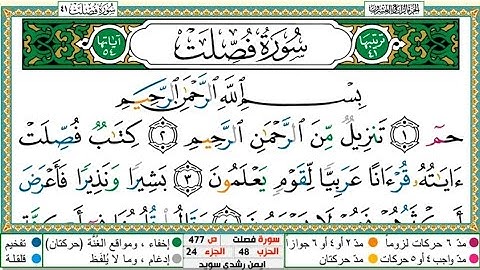 الجزء الرابع والعشرون سورة فصلت ٤١
ترتيبها ٤١ سورة فصلت آياتها ٥٤
بِسْمِ اللَّهِ الرَّحْمَٰنِ الرَّحِيمِ
حمٓ ١ تَنزِيلٌ مِّنَ الرَّحْمَٰنِ الرَّحِيمِ ٢ كِتَٰبٌ فُصِّلَتْ
ءَايَٰتُهُۥ قُرْءَانًا عَرَبِيًّا لِّقَوْمٍ يَعْلَمُونَ ٣ بَشِيرًا وَنَذِيرًا فَأَعْرَضَ
مدّ ٦ حركات لزوماً مدّ ٢ أو ٤ أو ٦ جوازاً سورة فصلت ص 477 إخفاء، ومواقع الغُنَّة (حركتان) تفخيم
مدّ واجب ٤ أو ٥ حركات مدّ حركتان الحزب 48 الجزء 24 إدغام، وما لا يُلفَظ قلقلة
أيمن رشدي سويد